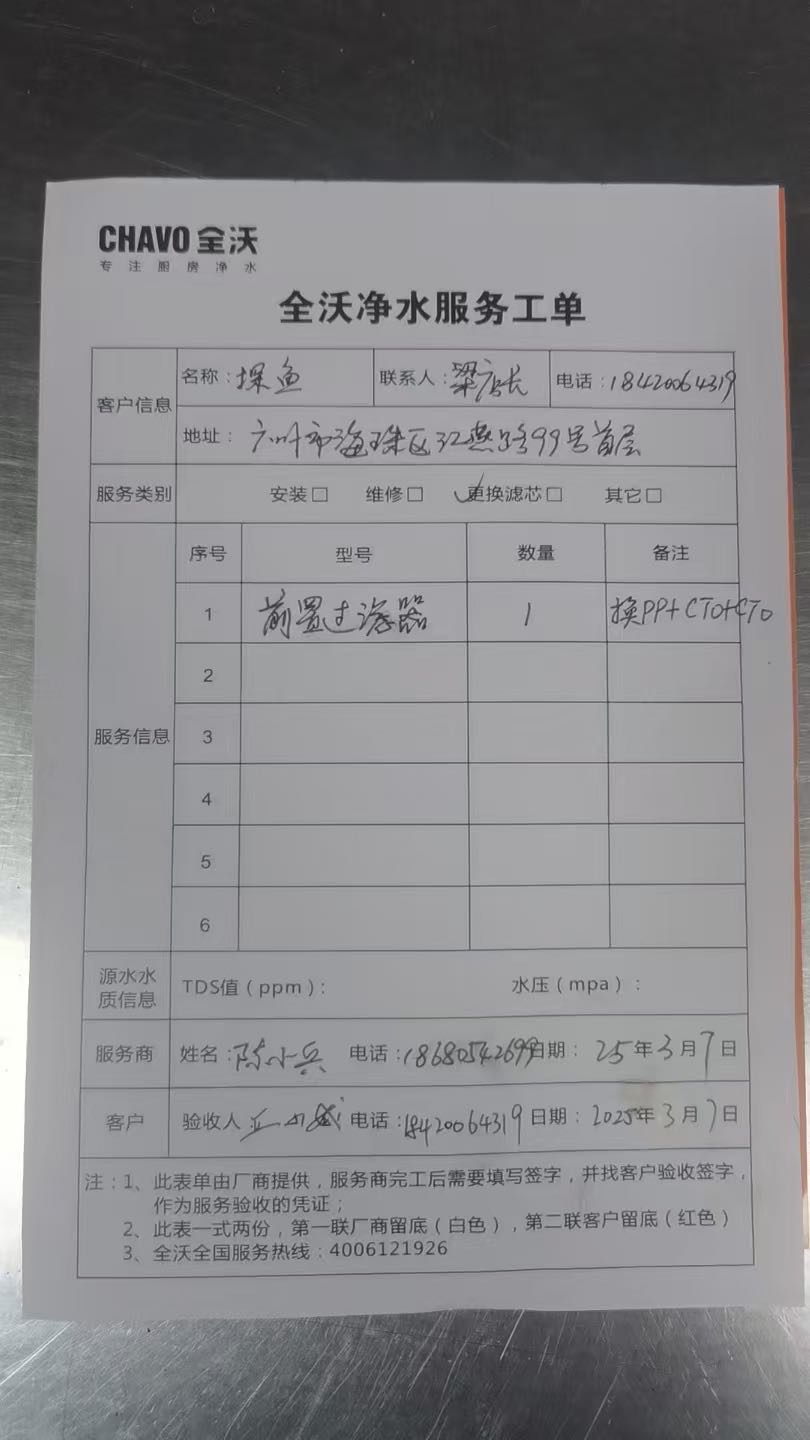 CHAVO 全沃
专注厨房净水
全沃净水服务工单
客户信息 名称：探鱼 联系人：梁店长 电话：18420064319
地址：广州市海珠区江燕路99号首层
服务类别 安装□ 维修□ ✓更换滤芯□ 其它□
服务信息
序号 型号 数量 备注
1 前置过滤器 1 换PP+CTO+CTO
2
3
4
5
6
源水水质信息 TDS值（ppm）： 水压（mpa）：
服务商 姓名：陈小兵 电话：18680542699 日期：25年3月7日
客户 验收人 电话：18420064319 日期：2025年3月7日
注：1、此表单由厂商提供，服务商完工后需要填写签字，并找客户验收签字，
作为服务验收的凭证；
2、此表一式两份，第一联厂商留底（白色），第二联客户留底（红色）
3、全沃全国服务热线：4006121926